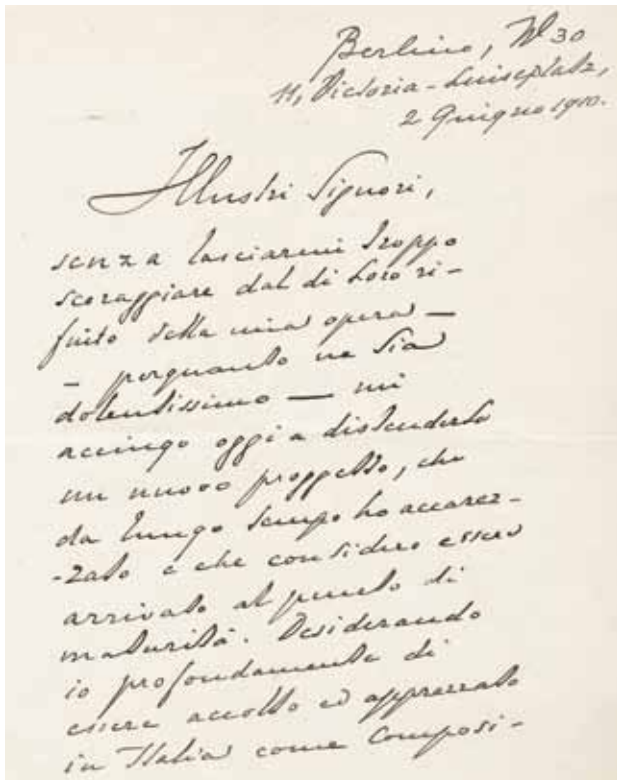 Berlino, W 30
11, Victoria-Luiseplatz,
2 Giugno 1910.
Illustri Signori,
senza lasciarmi troppo
scoraggiare dal di Loro ri-
fiuto della mia opera —
— perquanto ne sia
dolentissimo — mi
accingo oggi a distenderLe
un nuovo proggetto, che
da lungo tempo ho accarez-
-zato e che considero essere
arrivato al punto di
maturità. Desiderando
io profondamente di
essere accolto ed apprezzato
in Italia come Composi-